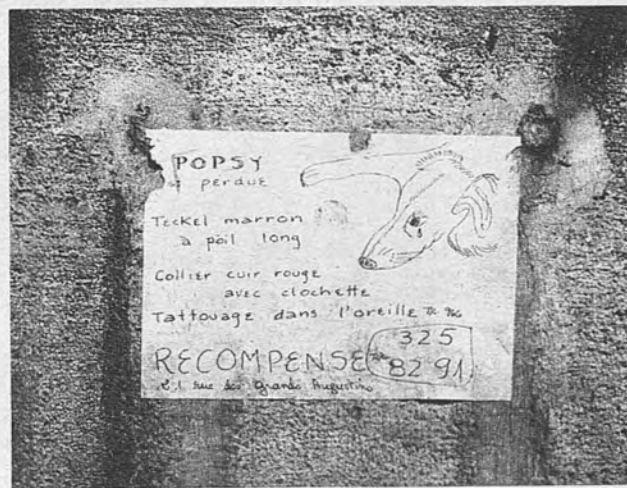 POPSY
perdue
Teckel marron
à poil long
Collier cuir rouge
avec clochette
Tattouage dans l'oreille
325
RECOMPENSE 82 91
rue des Grands Augustins